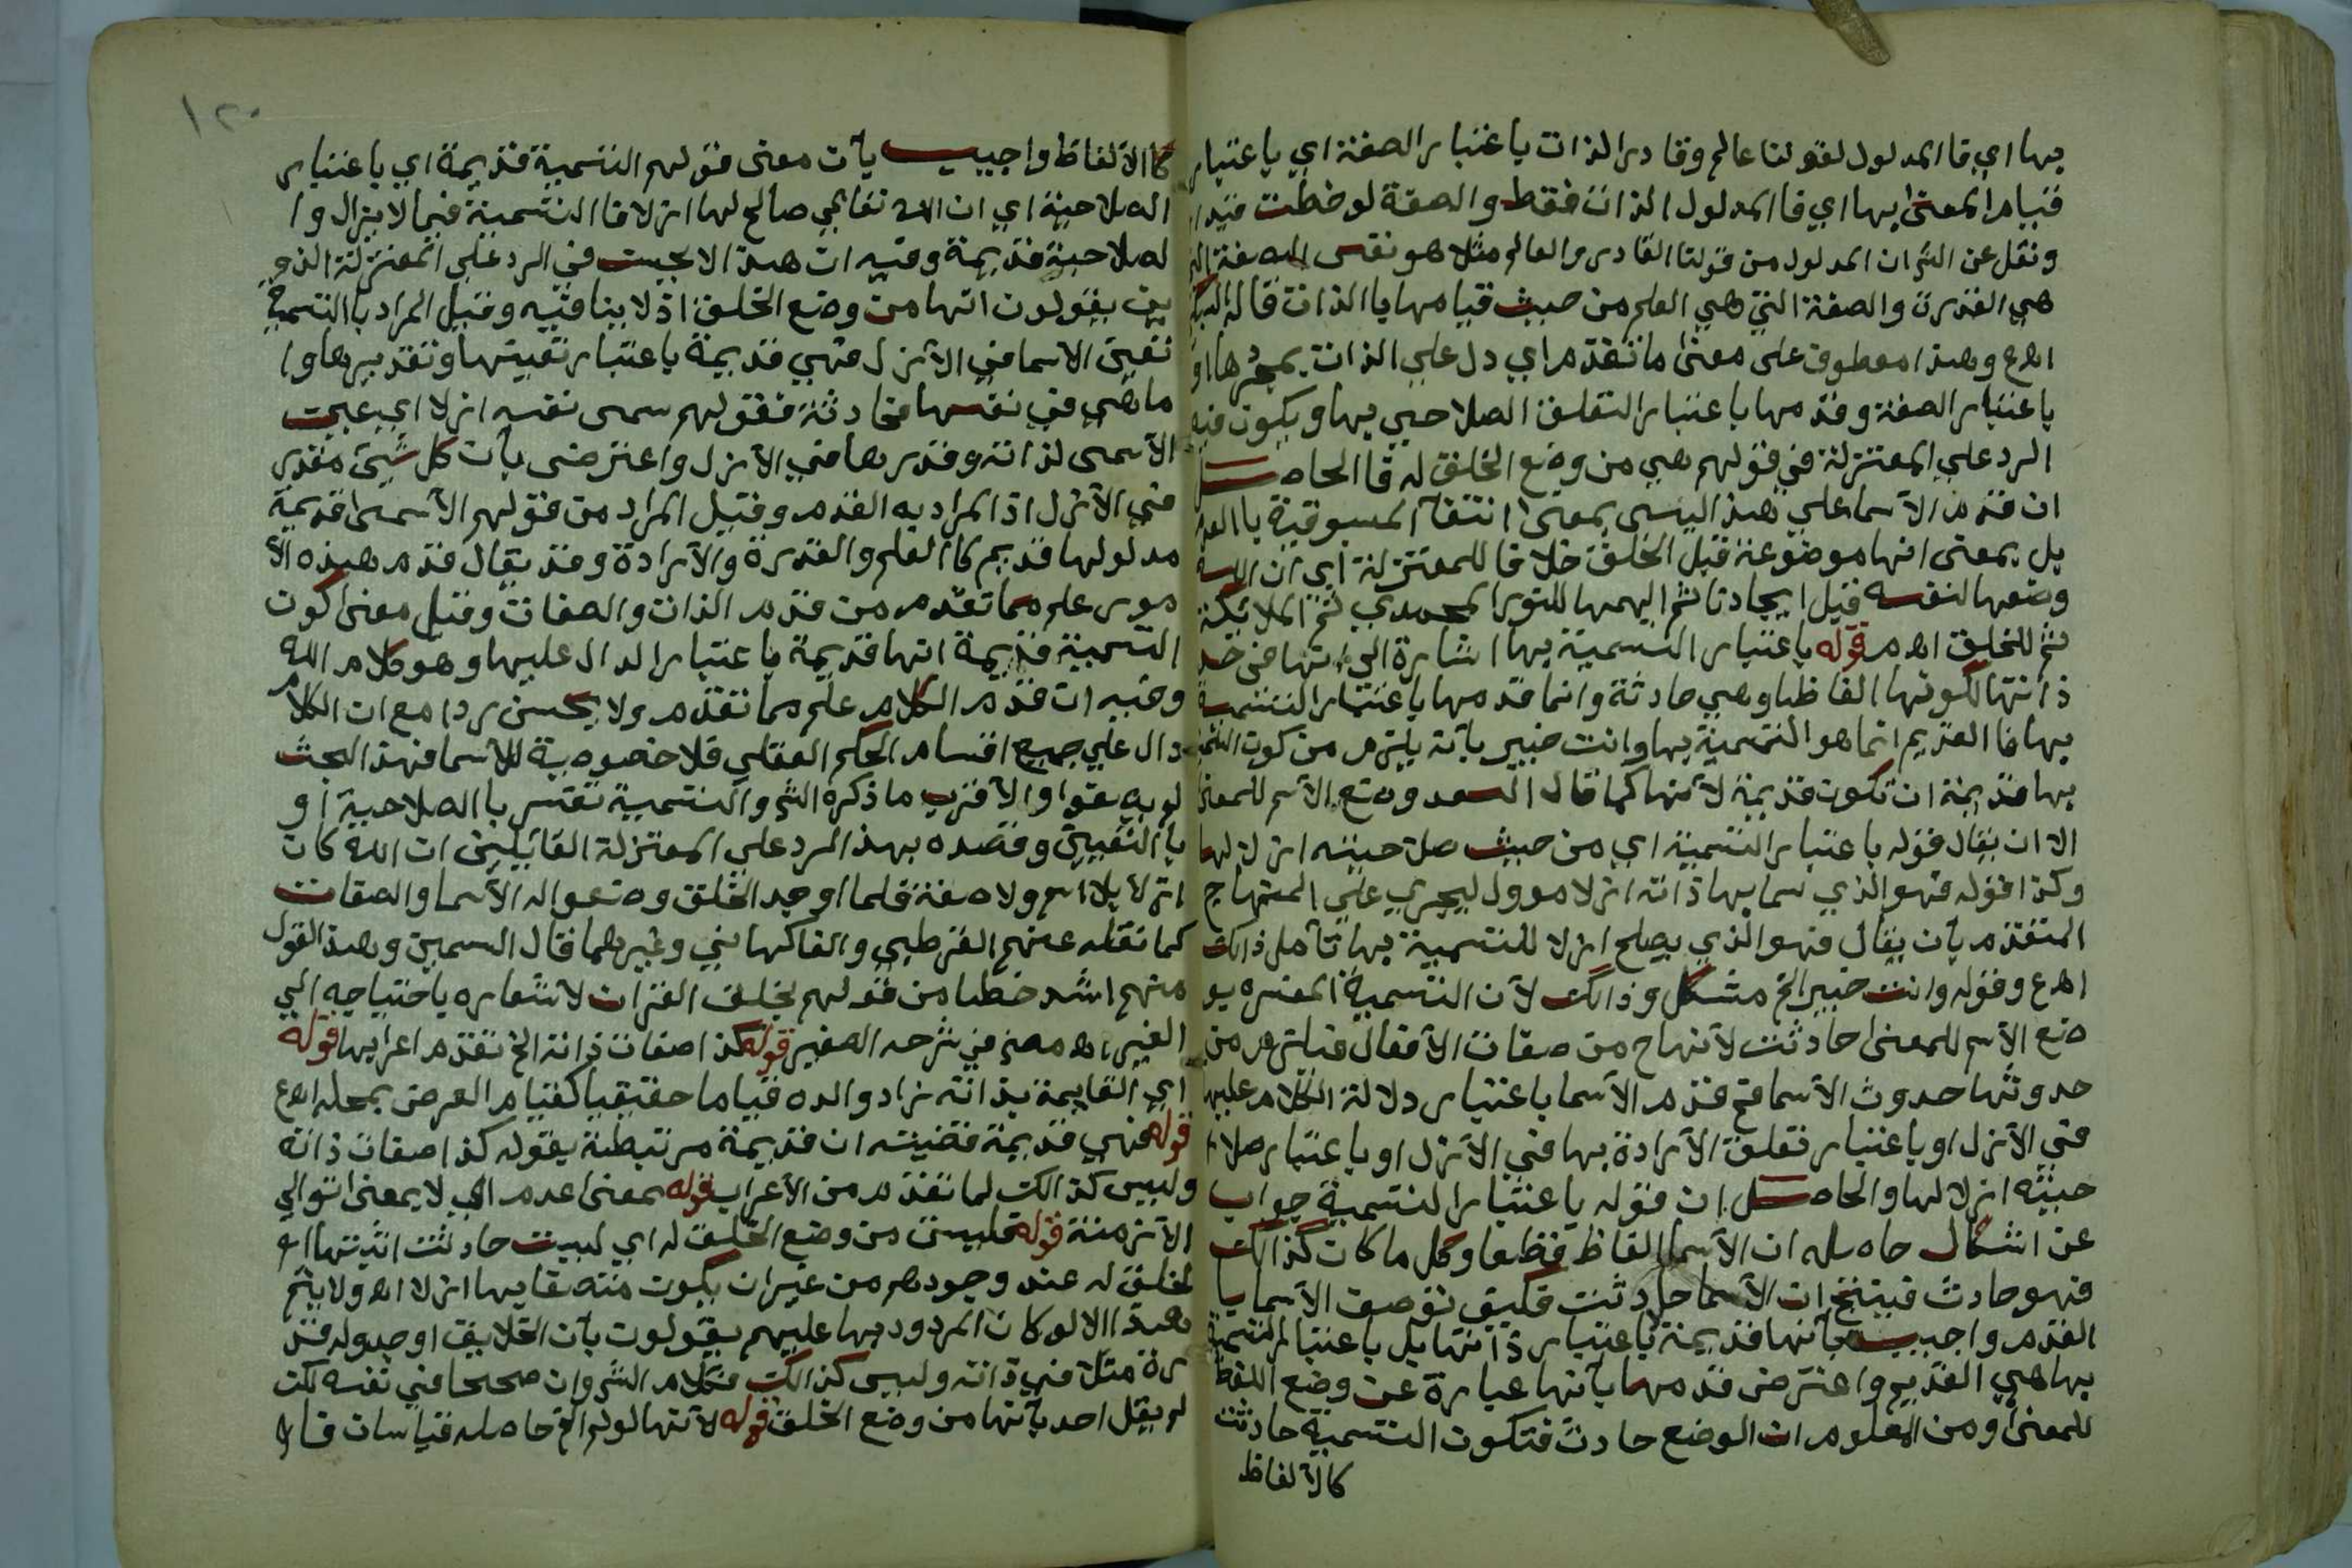 بها اي فا المدلول لقولنا عالم وقادر الذات باعتبار الصفة اي باعتبار
قيام المعنى بها اي فا المدلول الذات فقط والصفة لوخظت قيدا
ونقل عن الش ان المدلول من قولنا القادر والعالم مثلا هو نفس الصفة التي
هي القدرة والصفة التي هي العلم من حيث قيامها با الذات قاله
اهع وهذا معطوف على معنى ما تقدم اي دل علي الذات بمجردها او
باعتبار الصفة وقدمها باعتبار التعلق الصلاحي بها ويكون فيه
الرد علي المعتزلة في قولهم هي من وضع الخلق له فا الحاصل
ان قدم الآسما علي هذا ليسى بمعنى انتفآ المسبوقية با العدم
بل بمعنى انها موضوعة قبل الخلق خلافا للمعتزلة اي ان الله
وضعها لنفسه قبل ايجادنا ثم الهمها للنور المحمدي ثم الملائكة
ثم للخلق اهم قوله باعتبار التسمية بها اشارة الي انها في حد
ذاتها لكونها الفاظا وهي حادثة وانما قدمها باعتبار التسمية
بها فا القديم انما هو التسمية بها وانت خبير بآنه يلزم من كون التسمية
بها قديمة ان تكون قديمة لآنها كما قال السعد وضع الآسم للمعنى
الا ان يقال قوله باعتبار التسمية اي من حيث صلاحيته ازلا لها
وكذا قوله فهو الذي سما بها ذاته ازلا موول ليجري علي المنهاج
المتقدم بآن يقال فهو الذي يصلح ازلا للتسمية بها تآمل ذالك
اهع وقوله وانت خبير الخ مشكل وذالك لآن التسمية المفسره بو
ضع الآسم للمعنى حادثت لآنها ح من صفات الآفعال فيلزم من
حدوثها حدوث الآسما فح قدم الآسما باعتبار دلالة الكلام عليها
في الآزل او باعتبار تعلق الآرادة بها في الآزل او باعتبار صلا
حيته ازلا لها والحاصل ان قوله باعتبار التسمية جواب
عن اشكال حاصله ان الآسما الفاظ قطعا وكل ما كان كذالك
فهو حادث فينتج ان الآسما حادثت فكيف توصف الآسما با
القدم واجيب بآنها قديمة باعتبار ذاتها بل باعتبا التسمية
بها هي القديم واعترض قدمها بآنها عبارة عن وضع اللفظ
للمعنى ومن المعلوم ان الوضع حادث فتكون التسمية حادثت
كالآلفاظ
١٢٠
كا الآلفاظ واجيب بآن معنى قولهم التسمية قديمة اي باعتبار
الصلاحية اي ان الله تعالي صالح لها ازلا فا التسمية فيما لا يزال وا
لصلاحية قديمة وفيه ان هذا لا يحسن في الرد علي المعتزلة الذي
ين يقولون انها من وضع الخلق اذ لا ينافيه وقيل المراد با التسمية
تعين الاسما في الآزل فهي قديمة باعتبار تعيينها وتقديرها وا
ما هي في نفسها فحادثة فقولهم سمى نفسه ازلا اي عين
الآسمى لذاته وقدرها في الآزل واعترضى بآن كل شيئ مقدر
في الآزل اذ المراد به القدم وقيل المراد من قولهم الآسمى قديمة
مدلولها قديم كا العلم والقدرة والآرادة وقد يقال قدم هذه الآ
مور علم مما تقدم من قدم الذات والصفات وقيل معنى كون
التسمية قديمة انها قديمة باعتبار الدال عليها وهو كلام الله
وفيه ان قدم الكلام علم مما تقدم ولا يحسن ردا مع ان الكلام
دال علي جميع اقسام الحكم العقلي فلا خصوصية للآسما فهذا البحث
لم به يقوا والآقرب ما ذكره الش والتسمية تفسر با الصلاحية او
با التعيين وقصده بهذا الرد علي المعتزلة القائيلين ان الله كان
ازلا بلا اسم ولا صفة فلما اوجد الخلق وضعوا له الآسما والصفات
كما نقله عنهم القرطبي والفاكهاني وغيرهما قال السمين وهذا القول
منهم اشد خطا من قولهم بخلق القران لآشعاره باحتياجه الي
الغير اه مصنف في شرحه الصغير قوله كذا صفات ذاته الخ تقدم اعرابها قوله
اي القايمة بذاته زاد والده قياما حقيقيا كقيام العرض بمحله اهع
قوله فهي قديمة قضيته ان قديمة مرتبطة بقوله كذا صفات ذاته
وليس كذالك لما تقدم من الآعراب قوله بمعنى عدم الخ لا بمعنى توالي
الآزمنة قوله فليست من وضع الخلق له اي ليست حادثت اثبتها له
لخلق له عند وجودهم من غير ان يكون متصفا بها ازلا اهع ولا يتم
هذا الا لو كان المردود بها عليهم يقولون بآن الخلايق اوجدوا له قد
رة مثلا في ذاته وليس كذالك فكلام الش وان صحيحا في نفسه لكن
لم يقل احد بآنها من وضع الخلق قوله لآنها لو لم الخ حاصله قياسان قال